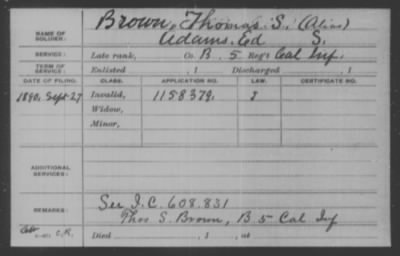 Brown, Thomas S. (Alias)
NAME OF SOLDIER: Adams, Ed S.
SERVICE: Late rank, Co. B. 5 Reg't Cal Inf.
TERM OF SERVICE: Enlisted , 1 Discharged , 1
DATE OF FILING. CLASS. APPLICATION NO. LAW. CERTIFICATE NO.
1890, Sept 27 Invalid, 1158379.
Widow,
Minor,
ADDITIONAL SERVICES:
REMARKS: See I.C. 608.831
Thos S. Brown, B 5 Cal Inf
C.R. Died , 1 , at